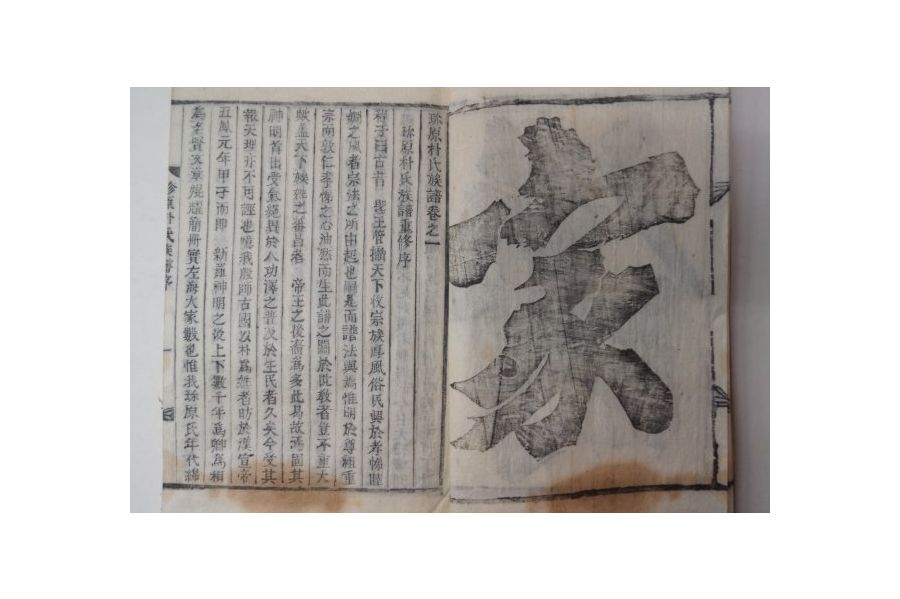 家
珎原朴氏族譜卷之一
珎原朴氏族譜重修序
程子曰古者 聖王管攝天下收宗族厚風俗民興於孝悌睦
之風者宗法之所由起也繇是而譜法興焉惟明於尊祖重
宗而敦仁孝悌之心油然而生此譜之關於世敎者豈不重大
歟盖天下族姓之蕃昌者 帝王之後裔爲多此曷故焉固其
神明首出受氣絕異於人功澤之普及於生民者久矣今受其
報天理亦不可誣也噫我殷師古國以朴爲姓者昉於漢宣帝
五鳳元年甲子而卽 新羅神明之後上下數千年爲卿爲相
爲名賢文章焜耀簡冊實左海大家數也惟我珎原氏年代綿
珍原朴氏族譜序 一